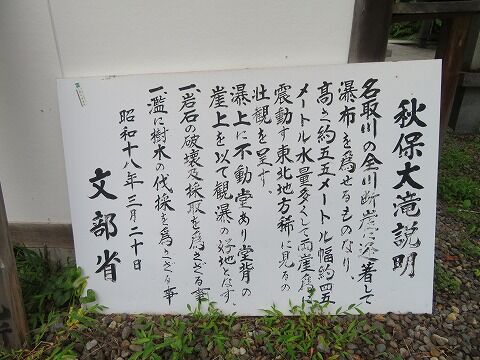 秋保大滝説明
名取川の全川断崖に逢著して
瀑布を為せるものなり
高さ約五五メートル幅約四五
メートル水量多くして両崖為に
震動す東北地方稀に見るの
壮観を呈す
瀑上に不動堂あり堂背の
崖上を以て観瀑の好地となす
一、岩石の破壊及採取を為さざる事
一、濫に樹木の伐採を為さざる事
昭和十八年三月二十日
文部省